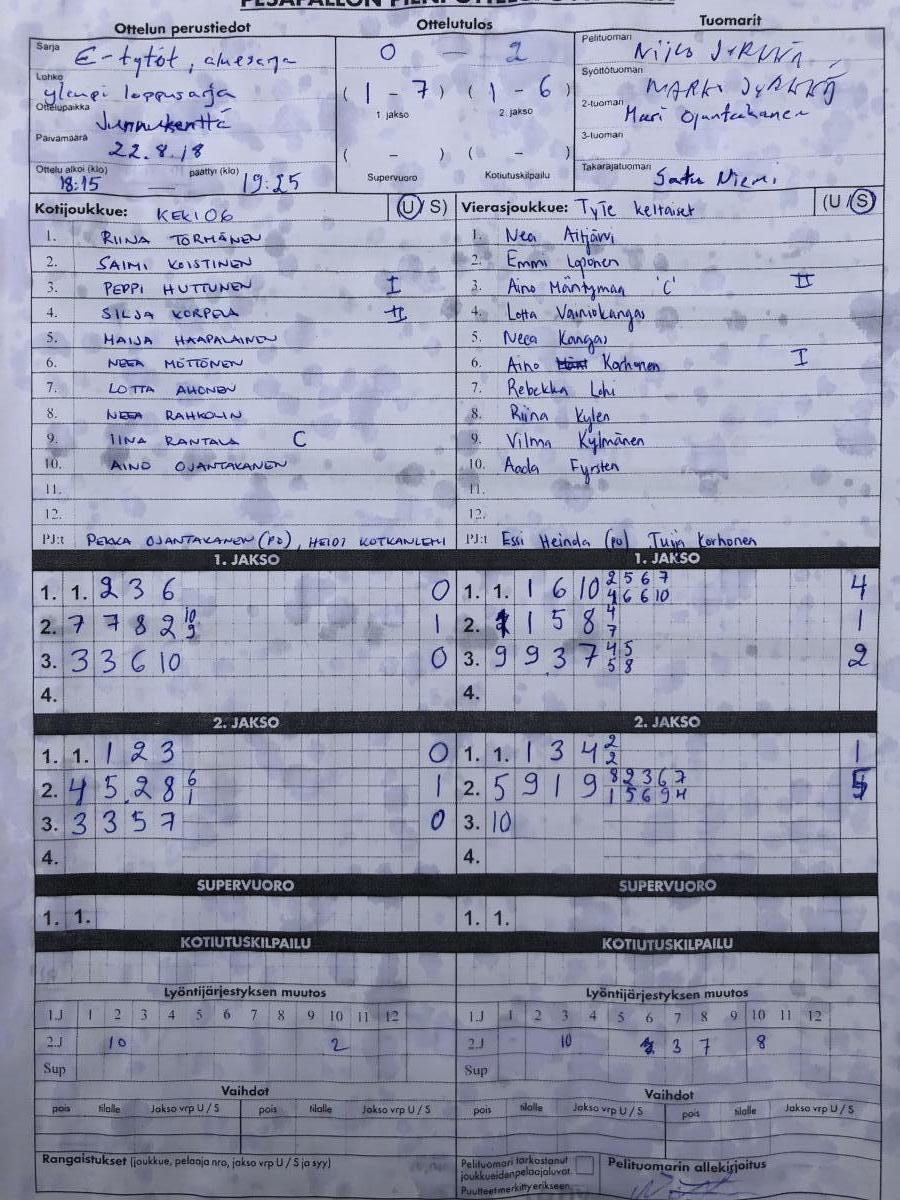 PESÄPALLON PIENPÖYTÄKIRJA
Ottelun perustiedot
Sarja E-tytöt, aluesarja
Lohko ylempi loppusarja
Ottelupaikka Junnukenttä
Päivämäärä 22.8.18
Ottelu alkoi (klo) 18:15 — päättyi (klo) 19:25
Ottelutulos
0 — 2
(1 - 7) (1 - 6)
1. jakso 2. jakso
( - ) ( - )
Supervuoro Kotiutuskilpailu
Tuomarit
Pelituomari
Syöttötuomari
2-tuomari Mari Ojantakanen
3-tuomari
Takarajatuomari Satu Niemi
Kotijoukkue: KEKI06 (U/S)
1. RIINA TÖRMÄNEN
2. SAIMI KOISTINEN
3. PEPPI HUTTUNEN I
4. SILJA KORPELA II
5. MAIJA HAAPALAINEN
6. NEEA MÖTTÖNEN
7. LOTTA AHONEN
8. NEEA RAHKOLIN
9. IINA RANTALA C
10. AINO OJANTAKANEN
11.
12.
PJ:t PEKKA OJANTAKANEN (PO), HEIDI KOTKANLEHI
Vierasjoukkue: TyTe keltaiset (U/S)
1. Nea Aitjärvi
2. Emmi Loponen
3. Aino Mäntymaa 'C' II
4. Lotta Vainiokangas
5. Neea Kangas
6. Aino Korhonen I
7. Rebekka Lehi
8. Riina Kylen
9. Vilma Kylmänen
10. Aada Fyrsten
11.
12.
PJ:t Essi Heinda (po) Tuija Korhonen
1. JAKSO
1. 1. 2 3 6 0
2. 7 7 8 2 10 9 1
3. 3 3 6 10 0
4.
1. JAKSO
1. 1. 1 6 10 2 5 6 7 4 6 6 10 4
2. 1 5 8 4 7 1
3. 9 9 3 7 4 5 5 8 2
4.
2. JAKSO
1. 1. 1 2 3 0
2. 4 5 2 8 6 1 1
3. 3 3 5 7 0
4.
2. JAKSO
1. 1. 1 3 4 2 2 1
2. 5 9 1 9 8 2 3 6 7 1 5 6 9 4 5
3. 10
4.
SUPERVUORO
1. 1.
SUPERVUORO
1. 1.
KOTIUTUSKILPAILU
KOTIUTUSKILPAILU
Lyöntijärjestyksen muutos
1.J 1 2 3 4 5 6 7 8 9 10 11 12
2.J 10 2
Sup
Lyöntijärjestyksen muutos
1.J 1 2 3 4 5 6 7 8 9 10 11 12
2.J 10 3 7 8
Sup
Vaihdot
pois tilalle Jakso vrp U / S pois tilalle Jakso vrp U / S
Vaihdot
pois tilalle Jakso vrp U / S pois tilalle Jakso vrp U / S
Rangaistukset (joukkue, pelaaja nro, jakso vrp U / S ja syy)
Pelituomari tarkastanut
joukkueiden pelaajaluvat.
Puutteet merkitty erikseen.
Pelituomarin allekirjoitus